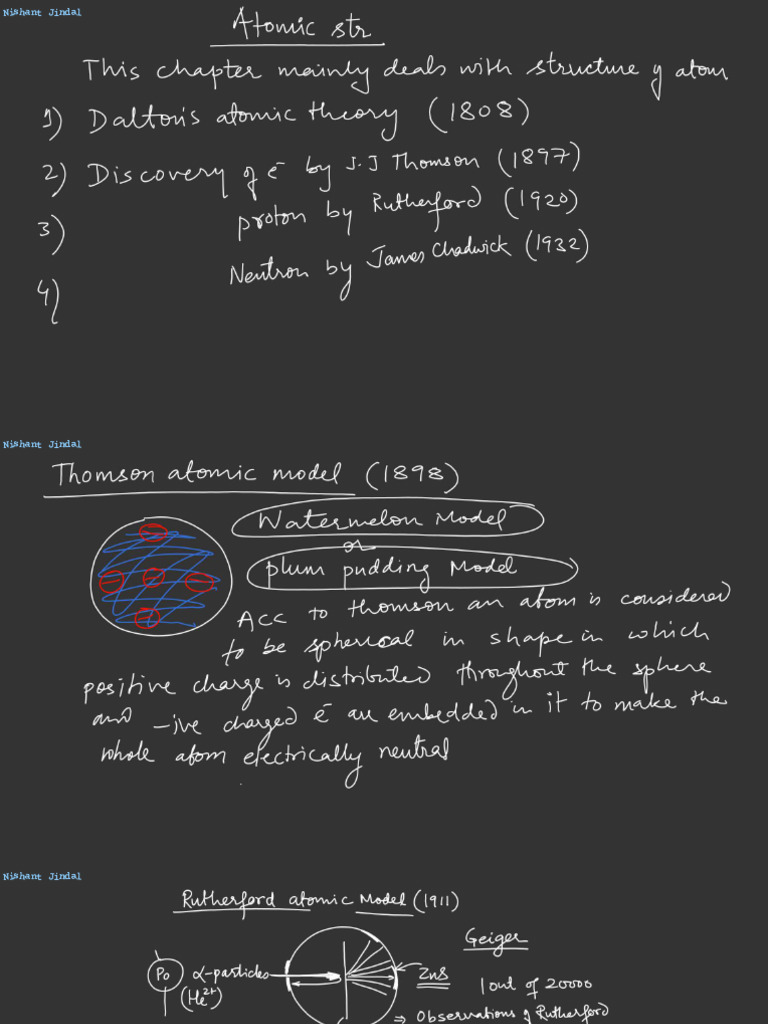 Nishant Jindal
Atomic str
This chapter mainly deals with structure of atom
1) Dalton's atomic theory (1808)
2) Discovery of e⁻ by J.J Thomson (1897)
3) proton by Rutherford (1920)
Neutron by James Chadwick (1932)
4)
Nishant Jindal
Thomson atomic model (1898)
Watermelon Model
or
plum pudding Model
Acc to thomson an atom is considered
to be spherical in shape in which
positive charge is distributed throughout the sphere
and -ive charged e⁻ are embedded in it to make the
whole atom electrically neutral
Nishant Jindal
Rutherford atomic Model (1911)
Geiger
Po α-particles ZnS
(He²⁺) 1 out of 20000
⇒ Observations of Rutherford